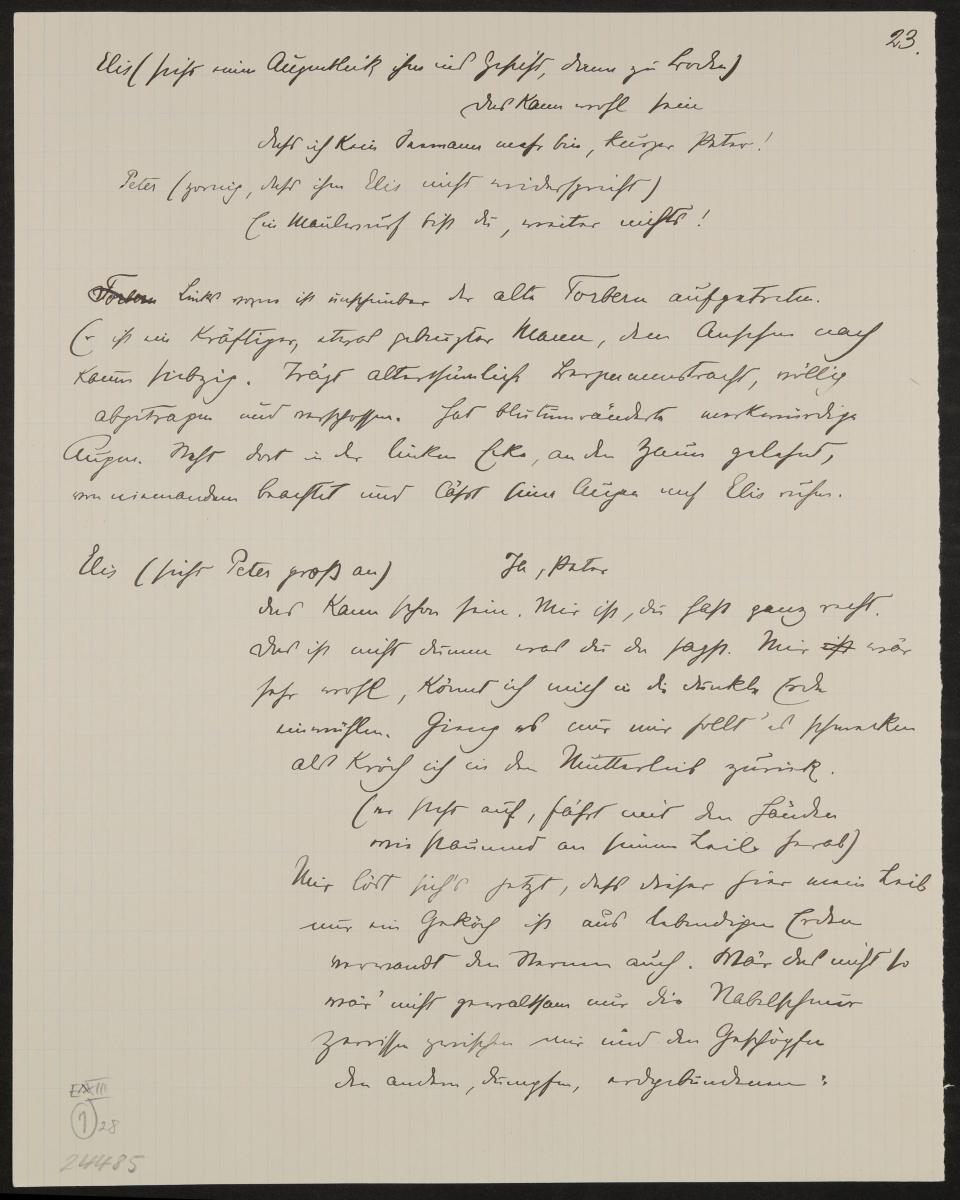 23.
Elis (sieht einen Augenblick ihm ins Gesicht, dann zu Boden)
Das kann wohl sein
daß ich kein Seemann mehr bin, kurzer Peter!
Peter (zornig, daß ihm Elis nicht widerspricht)
Ein Maulwurf bist du, weiter nichts!
Torbern Links vorn ist unscheinbar der alte Torbern aufgetreten.
Er ist ein kräftiger, etwas gebeugter Mann, dem Ansehen nach
kaum siebzig. Trägt altertümliche Bergmannstracht, völlig
abgetragen und verschossen. Hat blutumränderte merkwürdige
Augen. Steht dort in der linken Ecke, an den Zaun gelehnt,
von niemandem beachtet und läßt seine Augen auf Elis ruhen.
Elis (sieht Peter groß an) Ja, Peter
das kann schon sein. Mir ist, du hast ganz recht.
Das ist nicht dumm was du da sagst. Mir ist wär
sehr wohl, könnt ich mich in die dunkle Erde
einwühlen. Gieng es nur mir sollt' es schmecken
als kröch ich in den Mutterleib zurück.
(er steht auf, fährt mit den Händen
wie staunend an seinem Leibe herab)
Mir löst sich's jetzt, daß dieser hier mein Leib
nur ein Geköch ist aus lebendigen Erden
verwandt den Sternen auch. Wär das nicht so
wär' nicht gewaltsam nur die Nabelschnur
zerrissen zwischen mir und den Geschöpfen
den andern, dumpfen, erdgebundenen:
E III
1 28
24485